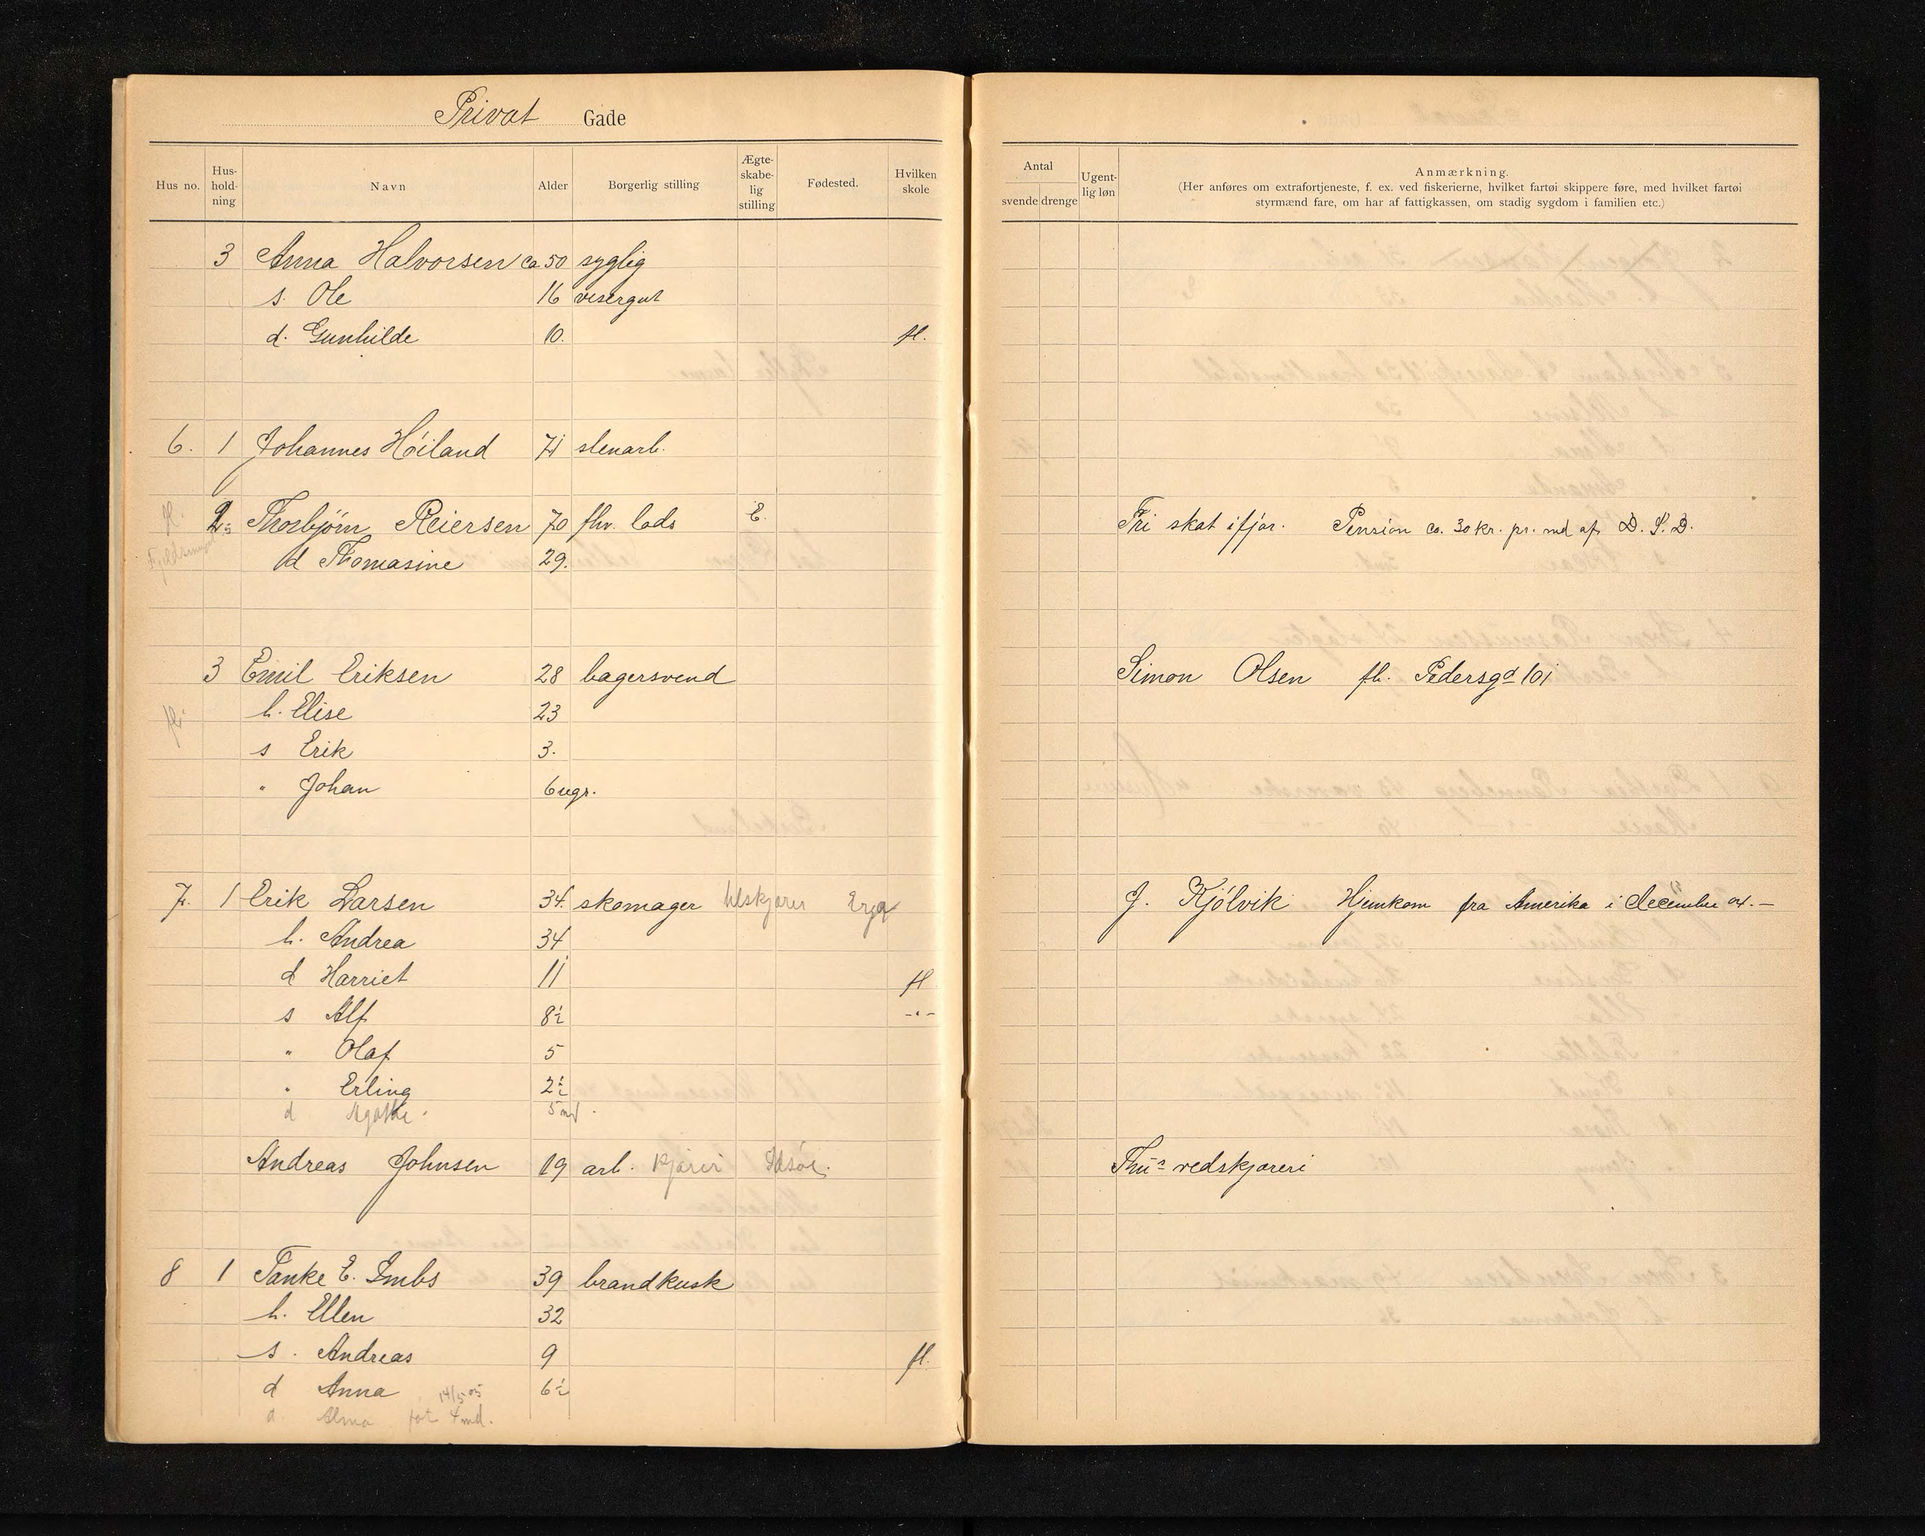 Privat Gade
Hus no. Hus-hold-ning Navn Alder Borgerlig stilling Ægte-skabe-lig stilling Fødested. Hvilken skole
Antal svende drenge Ugent-lig løn Anmærkning.
(Her anføres om extrafortjeneste, f. ex. ved fiskerierne, hvilket fartøi skippere føre, med hvilket fartøi
styrmænd fare, om har af fattigkassen, om stadig sygdom i familien etc.)
3 Anna Halvorsen ca 50 syglig
s. Ole 16 visergut
d. Gunhilde 10. fl.
6. 1 Johannes Höiland 71 stenarb.
fl. 2 Thorbjörn Reiersen 70 fhv. lods E. Fri skat ifjor. Pension ca. 30 kr. pr. md af D. S. D.
d Thomasine 29.
3 Emil Eriksen 28 bagersvend Simon Olsen fl. Pedersgd 101
fl. h. Elise 23
s Erik 3.
" Johan 6 ugr.
7. 1 Erik Larsen 34. skomager J. Kjölvik Hjemkom fra Amerika i december 04.—
h. Andrea 34
d Harriet 11 fl
s Alf 8½ -"-
" Olaf 5
" Erling 2½
d Agathe. 5 md.
Andreas Johnsen 19 arb. kjöreri Idsöe. Thu's vedskjæreri
8 1 Tanke E. Imbs 39 brandkusk
h. Ellen 32
s. Andreas 9 fl.
d Anna 6½
14/5 05
d. Alma 4 md.